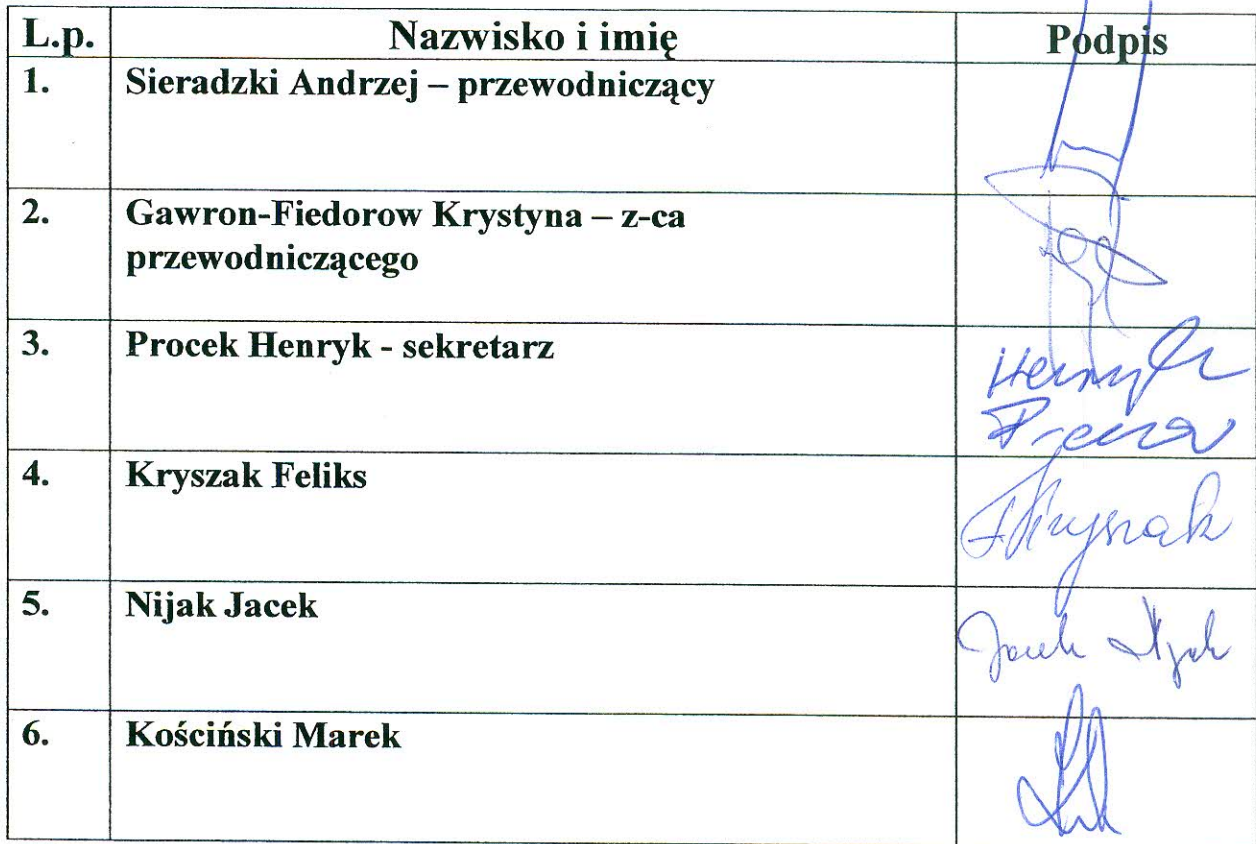 L.p. Nazwisko i imię Podpis
1. Sieradzki Andrzej – przewodniczący
2. Gawron-Fiedorow Krystyna – z-ca
przewodniczącego
3. Procek Henryk - sekretarz
Henryk
4. Kryszak Feliks FKryszak
5. Nijak Jacek Jacek Nijak
6. Kościński Marek